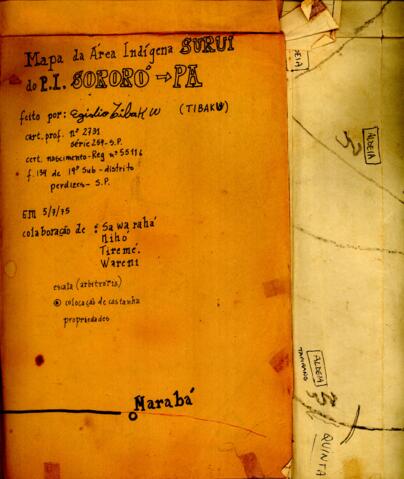 Mapa da Área Indígena SURUI
do P.I. SORORÓ → PA
feito por: Egidio (TIBAKW)
cart. prof. nº 2731
série 269-S.P.
cert. nascimento-Reg nº 55116
f. 154 de 19º Sub-distrito
perdizes - S.P.
EM 5/7/75
colaboração de : Sawarahá
Nihó
Tiremé.
Wareni
escala (arbitrária)
colocação de castanha
propriedades
Marabá
ALDEIA
ALDEIA
QUINTA